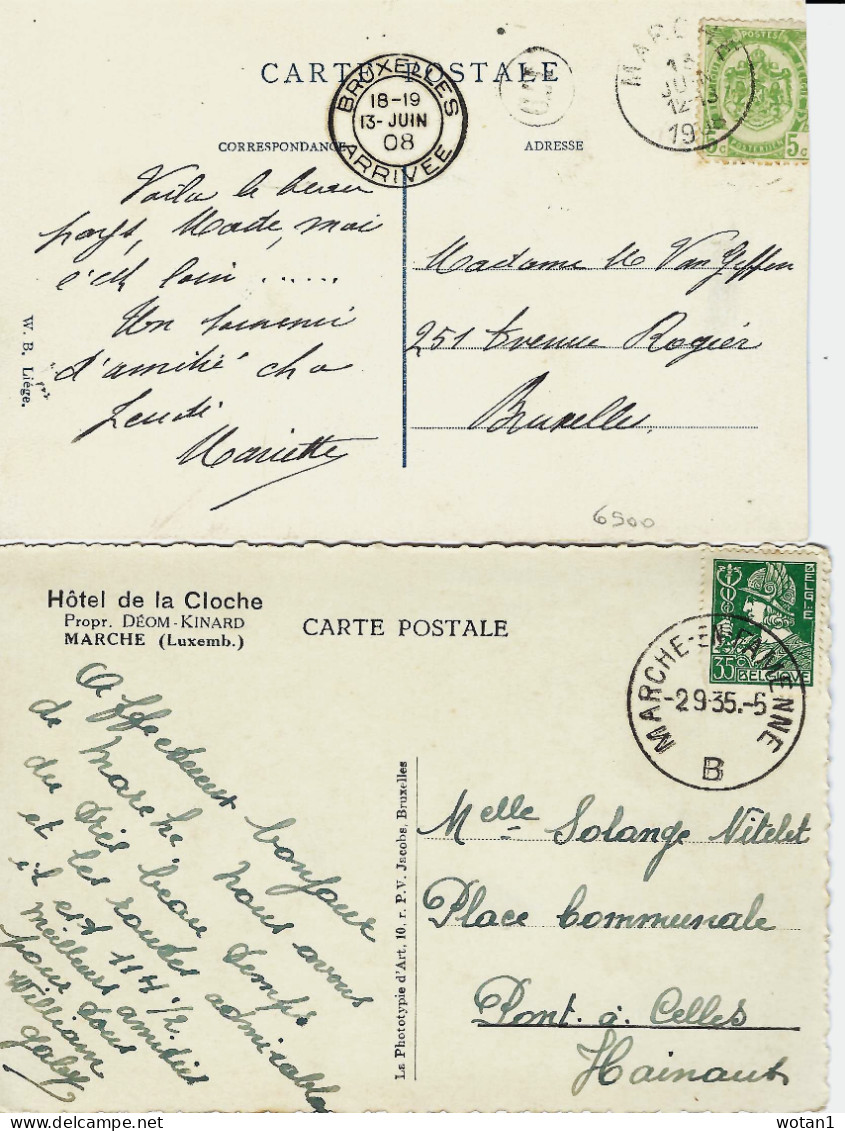 CARTE POSTALE
BRUXELLES
18-19
13-JUIN
08
ARRIVÉE
MARCHE
13
JUIN
12-
19
POSTES
5c
CORRESPONDANCE
ADRESSE
Voilà le beau
pays, Made, mai
c'est loin ......
Un souvenir
d'amitié cha
Jeudi
Mariette
W. B. Liége.
Madame M Van Geffen
251 Avenue Rogier
Bruxelles
6500
Hôtel de la Cloche
Propr. DÉOM-KINARD
MARCHE (Luxemb.)
CARTE POSTALE
BELGIE
35c
BELGIQUE
MARCHE-EN-FAMENNE
-2.9.35.-5
B
Affectueux bonjour
de Marche, nous avons
du très beau temps
et les routes admirables
il est 11 H 1/2.
Meilleurs amitiés
pour tous
William
Gaby
La Phototypie d'Art, 10, r. P.V. Jacobs, Bruxelles
Melle Solange Vitelet
Place Communale
Pont à Celles
Hainaut
wotan1